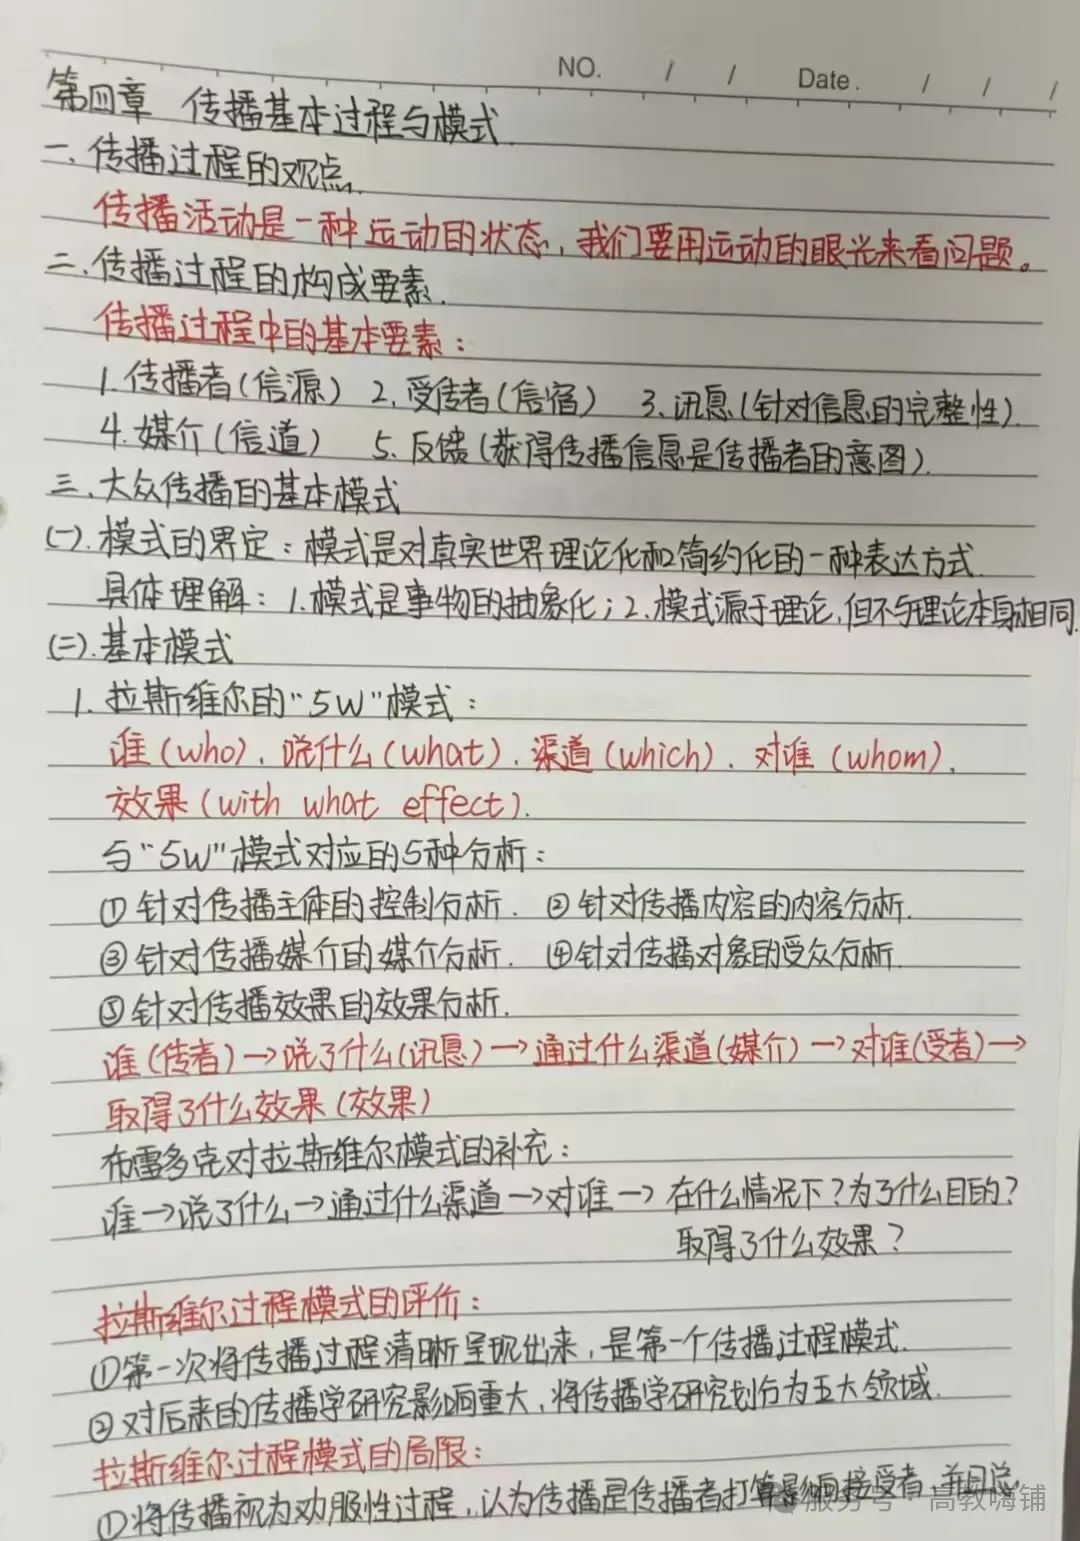 NO. / / Date. / / /
第四章 传播基本过程与模式.
一、传播过程的观点.
传播活动是一种运动的状态，我们要用运动的眼光来看问题。
二、传播过程的构成要素.
传播过程中的基本要素：
1.传播者(信源) 2.受传者(信宿) 3.讯息(针对信息的完整性).
4.媒介(信道) 5.反馈(获得传播信息是传播者的意图).
三、大众传播的基本模式
(一).模式的界定：模式是对真实世界理论化和简约化的一种表达方式.
具体理解：1.模式是事物的抽象化；2.模式源于理论,但不与理论本身相同.
(二).基本模式
1.拉斯维尔的“5W”模式：
谁(who)、说什么(what)、渠道(which)、对谁(whom)、
效果(with what effect).
与“5W”模式对应的5种分析：
①针对传播主体的控制分析. ②针对传播内容的内容分析.
③针对传播媒介的媒介分析. ④针对传播对象的受众分析.
⑤针对传播效果的效果分析.
谁(传者)→说了什么(讯息)→通过什么渠道(媒介)→对谁(受者)→
取得了什么效果(效果)
布雷多克对拉斯维尔模式的补充：
谁→说了什么→通过什么渠道→对谁→在什么情况下？为了什么目的？
取得了什么效果？
拉斯维尔过程模式的评价：
①第一次将传播过程清晰呈现出来，是第一个传播过程模式.
②对后来的传播学研究影响重大，将传播学研究划分为五大领域.
拉斯维尔过程模式的局限：
①将传播视为劝服性过程，认为传播是传播者打算影响接受者，并且总
服务号·高教嗨铺